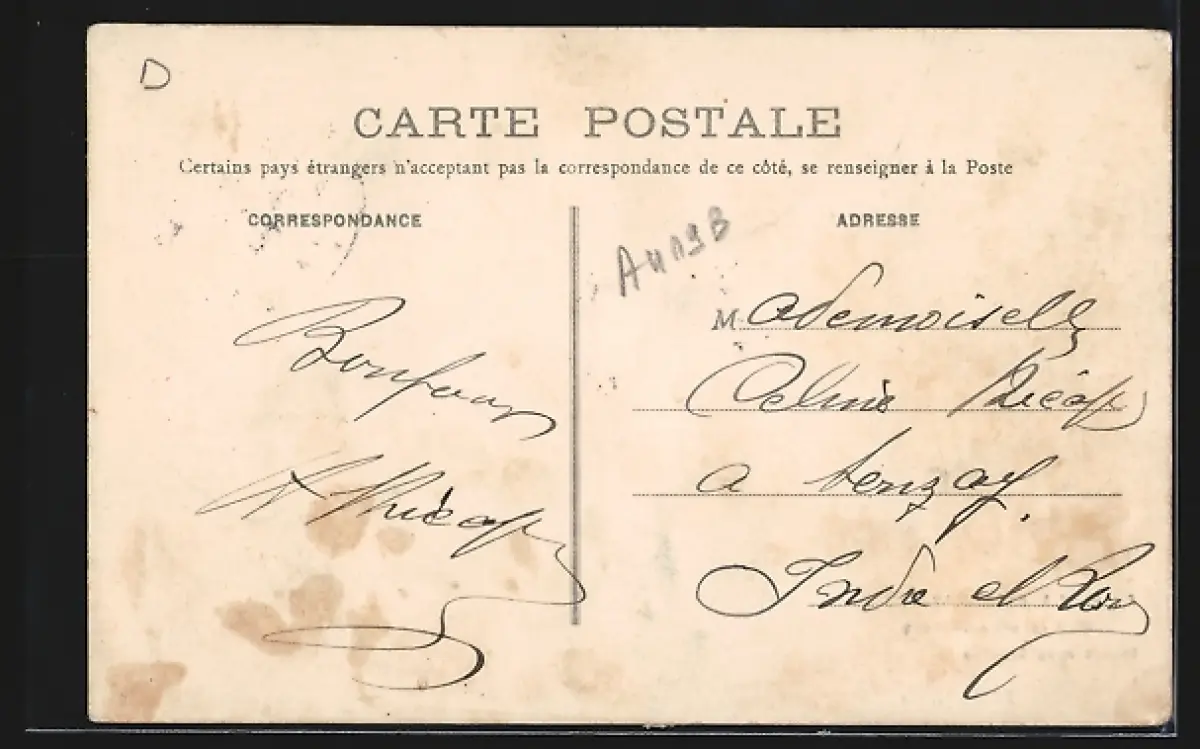 D
CARTE POSTALE
Certains pays étrangers n'acceptant pas la correspondance de ce côté, se renseigner à la Poste
CORRESPONDANCE
ADRESSE
Mademoiselle
Bonjour
Celine
a
Indre et Loire